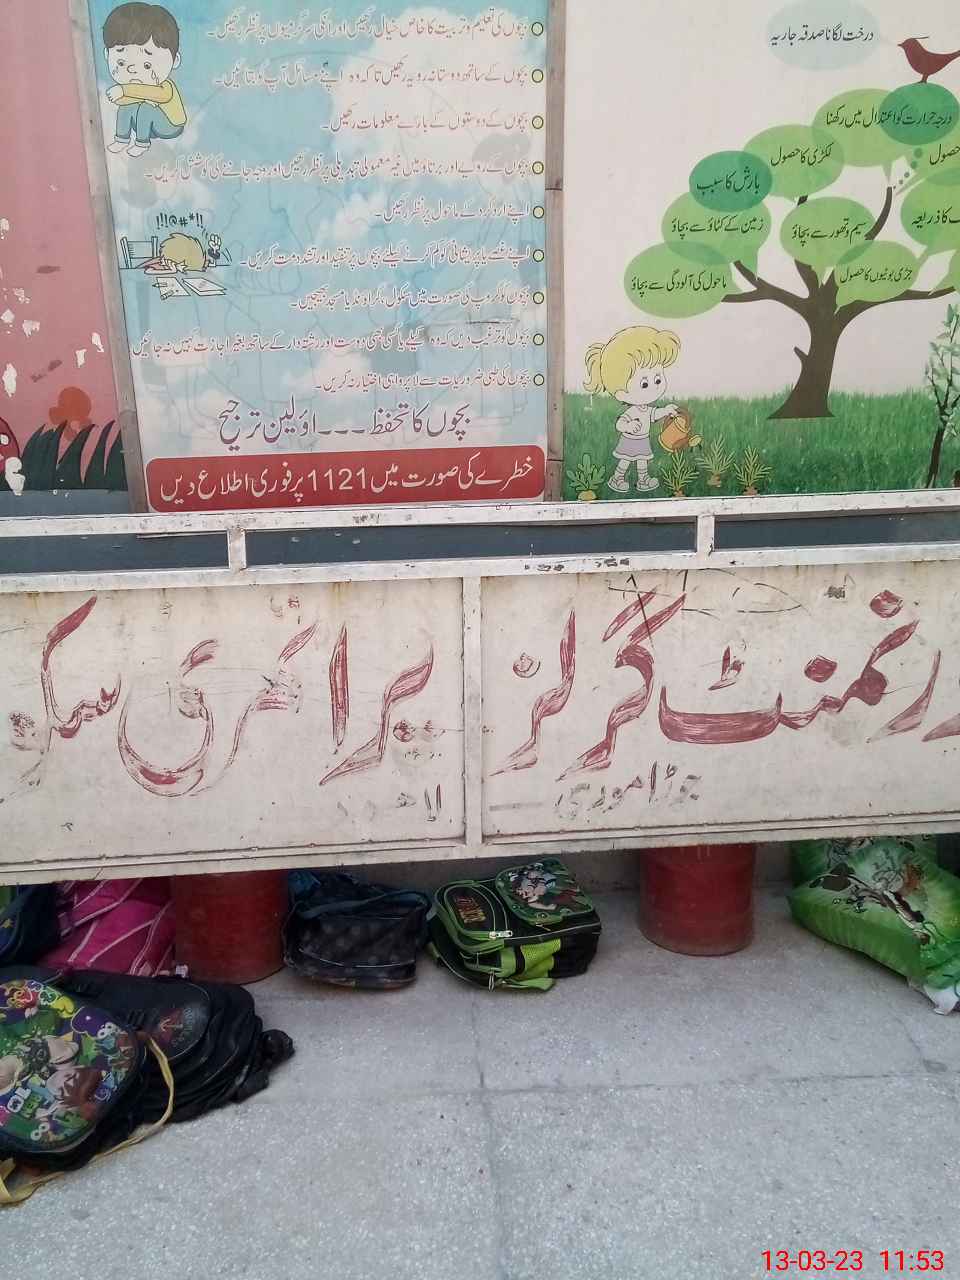 بچوں کی تعلیم و تربیت کا خاص خیال رکھیں اور انکی سرگرمیوں پر نظر رکھیں۔
بچوں کے ساتھ دوستانہ رویہ رکھیں تاکہ وہ اپنے مسائل آپ کو بتائیں۔
بچوں کے دوستوں کے بارے معلومات رکھیں۔
بچوں کے رویے اور برتاؤ میں غیر معمولی تبدیلی پر نظر رکھیں اور وجہ جاننے کی کوشش کریں۔
اپنے ارد گرد کے ماحول پر نظر رکھیں۔
!!*#@!!
اپنے غصہ یا پریشانی کو کم کرنے کیلئے بچوں پر تنقید اور تشدد مت کریں۔
بچوں کو گروپ کی صورت میں سکول، گراؤنڈ یا مسجد بھیجیں۔
بچوں کو ترغیب دیں کہ وہ اکیلے یا کسی دوست اور رشتہ دار کے ساتھ بغیر اجازت کہیں نہ جائیں
بچوں کی طبی ضروریات سے لاپرواہی اختیار نہ کریں۔
بچوں کا تحفظ --- اوّلین ترجیح
خطرے کی صورت میں 1121 پر فوری اطلاع دیں
درخت لگانا صدقہ جاریہ
درجہ حرارت کو اعتدال میں رکھنا
لکڑی کا حصول
حصول
بارش کا سبب
زمین کے کٹاؤ سے بچاؤ
سیم و تھور سے بچاؤ
کا ذریعہ
ماحول کی آلودگی سے بچاؤ
جڑی بوٹیوں کا حصول
ورنمنٹ گرلز پرائمری سکو
جوڑا موری لاہور
13-03-23 11:53